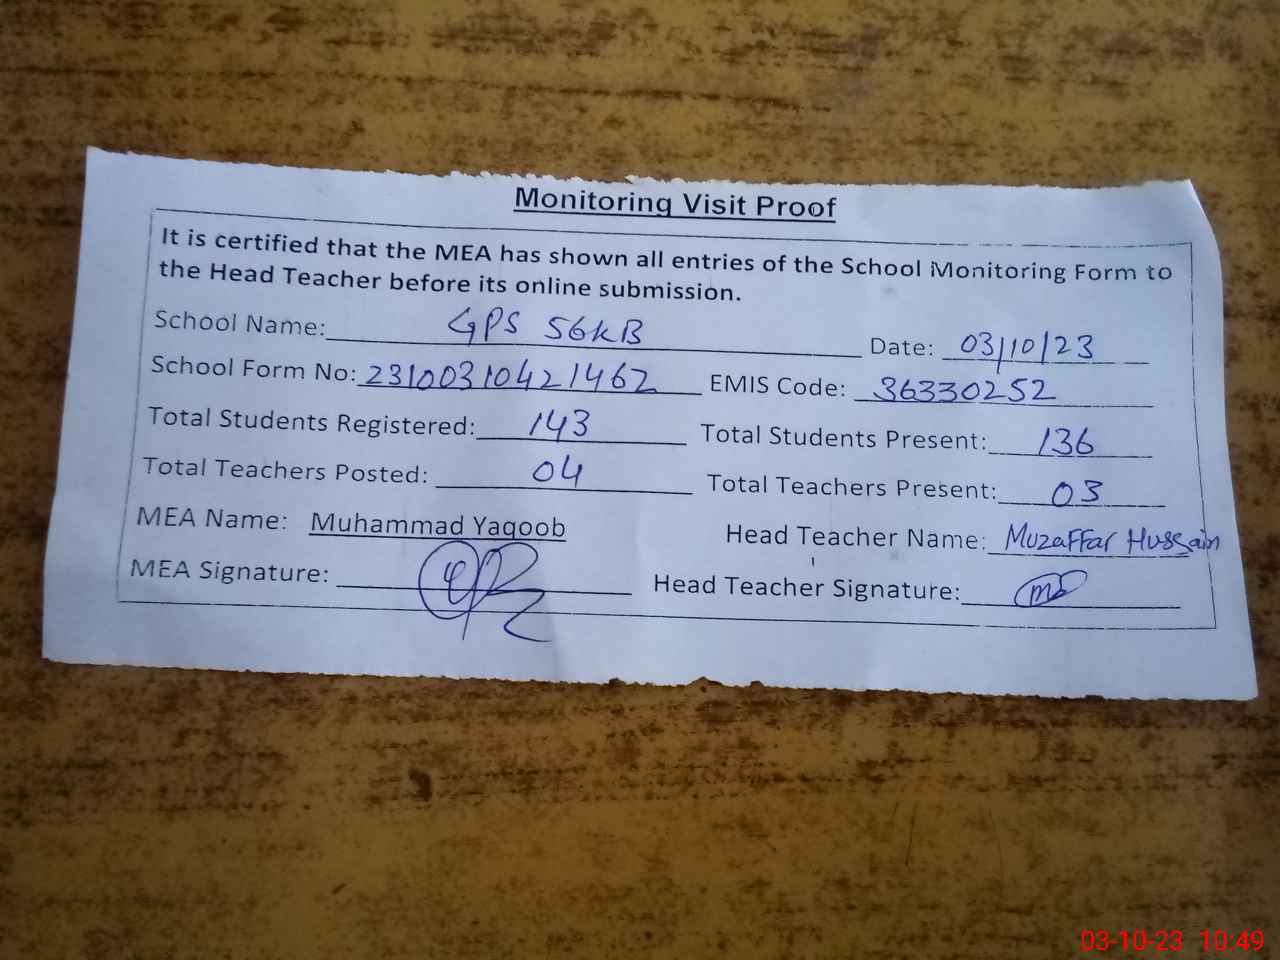 Monitoring Visit Proof
It is certified that the MEA has shown all entries of the School Monitoring Form to
the Head Teacher before its online submission.
School Name: GPS 56KB Date: 03/10/23
School Form No: 23100310421462 EMIS Code: 36330252
Total Students Registered: 143 Total Students Present: 136
Total Teachers Posted: 04 Total Teachers Present: 03
MEA Name: Muhammad Yaqoob Head Teacher Name: Muzaffar Hussain
MEA Signature: Head Teacher Signature:
03-10-23 10:49